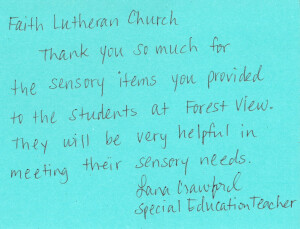 Faith Lutheran Church
Thank you so much for
the sensory items you provided
to the students at Forest View.
They will be very helpful in
meeting their sensory needs.
Lana Crawford
Special Education Teacher